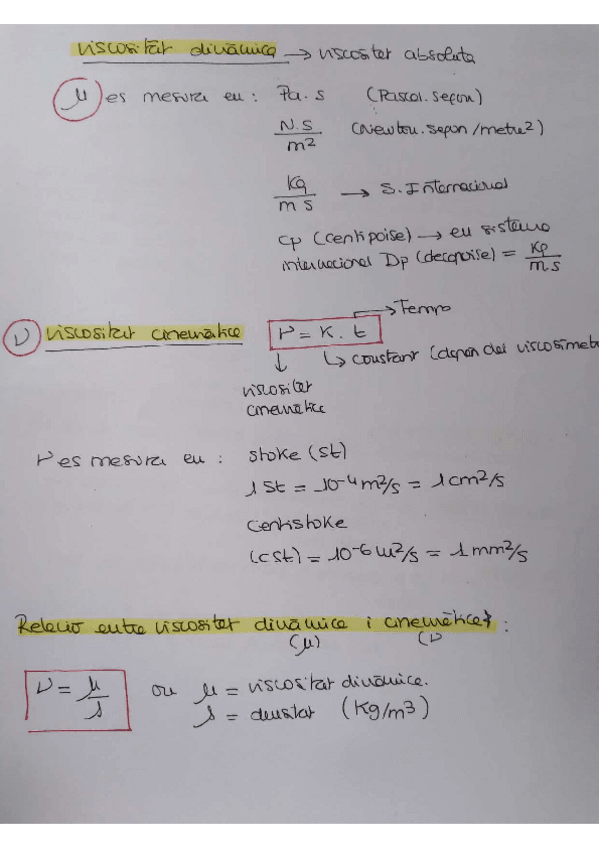 viscositat dinàmica → viscositat absoluta
μ es mesura en: Pa.s (Pascal.segon)
N.s/m² (Newton.segon/metre²)
Kg/m s → S. Internacional
cp (centipoise) → en sistema
internacional Dp (decapoise) = Kg/m s
→ Tempo
ν viscositat cinemàtica ν = K. t
↓ ↳ constant (depen del viscosimet
viscositat
cinemàtica
ν es mesura en: stoke (St)
1 St = 10-4 m²/s = 1 cm²/s
Centistoke
(cSt) = 10-6 m²/s = 1 mm²/s
Relació entre viscositat dinàmica i cinemàtica:
(μ) (ν
ν = μ/ρ on μ = viscositat dinàmica.
ρ = densitat (Kg/m3)